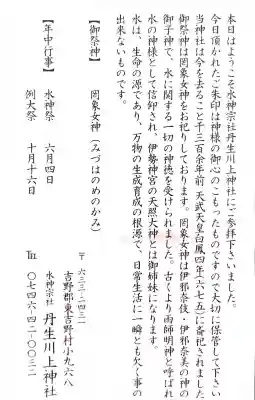 本日はようこそ水神宗社丹生川上神社にご参拝下さいました。
今日頂かれたご朱印は神様の御心のこもったものですので大切に保管して下さい
当神社は今を去ること千三百余年前 天武天皇白鳳四年(六七五)に斎祀されました
御祭神は罔象女神をお祀りしております。罔象女神は伊邪奈伎・伊邪奈美の神の
御子神で、水に関する一切の神徳を受けられました。古くより雨師明神と呼ばれ
水の神様として信仰され、伊勢神宮の天照大神とは御姉妹になります。
水は、生命の源であり、万物の生成育成の根源で、日常生活に一瞬とも欠く事の
出来ないものです。
【御祭神】 罔象女神(みづはのめのかみ)
【年中行事】 水神祭 六月四日
例大祭 十月十六日
〒六三三-二四三一
吉野郡東吉野村小九六八
水神宗社 丹生川上神社
℡ 〇七四六-四二-〇〇三二